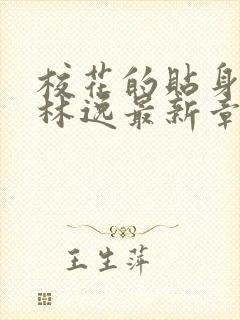 校花的贴身
林逸最新章
王生萍